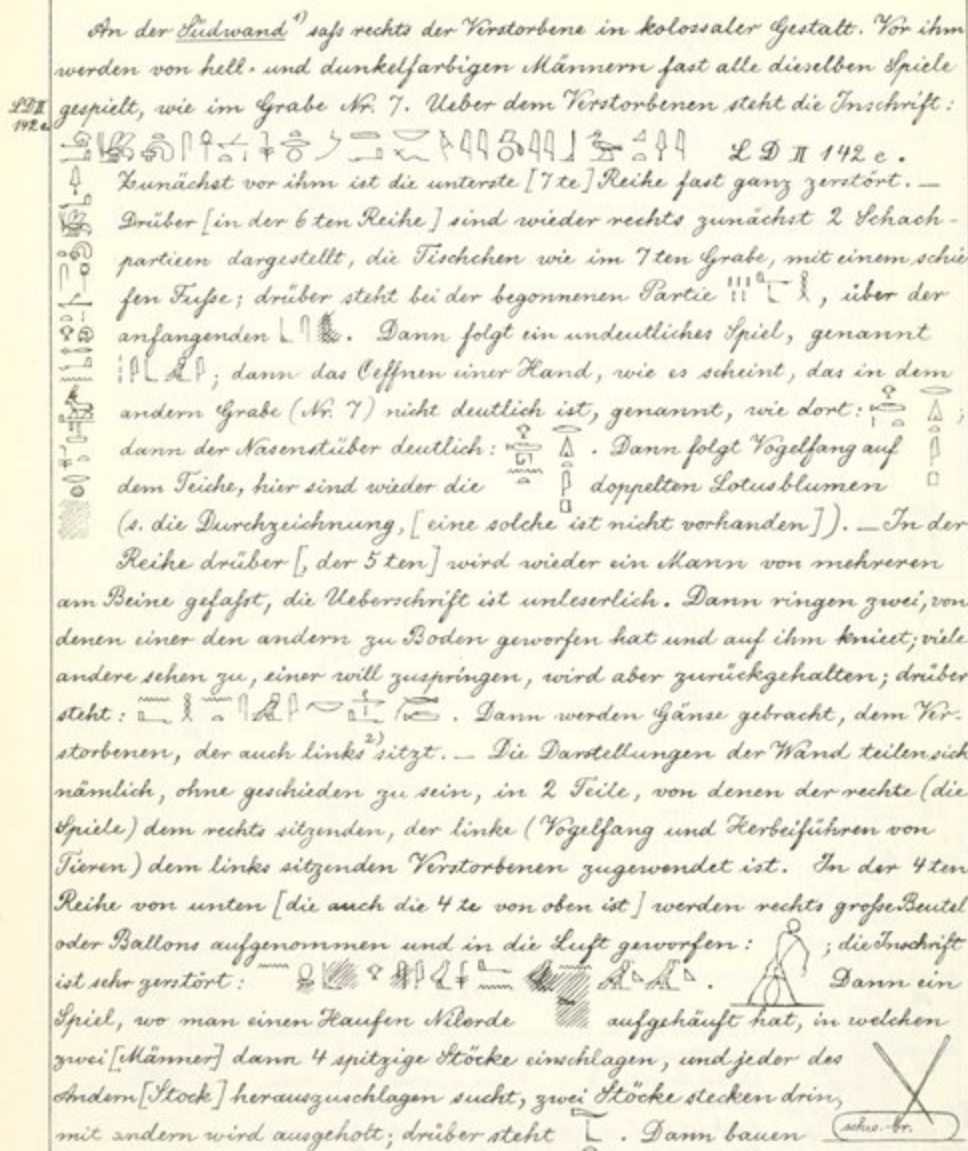 An der Südwand ¹⁾ saſs rechts der Verstorbene in kolossaler Gestalt. Vor ihm
werden von hell- und dunkelfarbigen Männern fast alle dieselben Spiele
LD II 142 c gespielt, wie im Grabe Nr. 7. Ueber dem Verstorbenen steht die Inschrift:
L D II 142 c.
Zunächst vor ihm ist die unterste [7te] Reihe fast ganz zerstört. —
Drüber [in der 6ten Reihe] sind wieder rechts zunächst 2 Schach-
partieen dargestellt, die Tischchen wie im 7ten Grabe, mit einem schie
fen Fuſse; drüber steht bei der begonnenen Partie , über der
anfangenden . Dann folgt ein undeutliches Spiel, genannt
; dann das Oeffnen einer Hand, wie es scheint, das in dem
andern Grabe (Nr. 7) nicht deutlich ist, genannt, wie dort: ;
dann der Nasenstüber deutlich: . Dann folgt Vogelfang auf
dem Teiche, hier sind wieder die doppelten Lotusblumen
(s. die Durchzeichnung, [eine solche ist nicht vorhanden]). — In der
Reihe drüber [, der 5ten] wird wieder ein Mann von mehreren
am Beine gefaſst, die Ueberschrift ist unleserlich. Dann ringen zwei, von
denen einer den andern zu Boden geworfen hat und auf ihm knieet; viele
andere sehen zu, einer will zuspringen, wird aber zurückgehalten; drüber
steht: . Dann werden Gänse gebracht, dem Ver-
storbenen, der auch links ²⁾ sitzt. — Die Darstellungen der Wand teilen sich
nämlich, ohne geschieden zu sein, in 2 Teile, von denen der rechte (die
Spiele) dem rechts sitzenden, der linke (Vogelfang und Herbeiführen von
Tieren) dem links sitzenden Verstorbenen zugewendet ist. In der 4ten
Reihe von unten [die auch die 4te von oben ist] werden rechts groſse Beutel
oder Ballons aufgenommen und in die Luft geworfen: ; die Inschrift
ist sehr zerstört: . Dann ein
Spiel, wo man einen Haufen Nilerde aufgehäuft hat, in welchen
zwei [Männer] dann 4 spitzige Stöcke einschlagen, und jeder des
Andern [Stock] herauszuschlagen sucht, zwei Stöcke stecken drin,
mit andern wird ausgeholt; drüber steht . Dann bauen schw. Br.